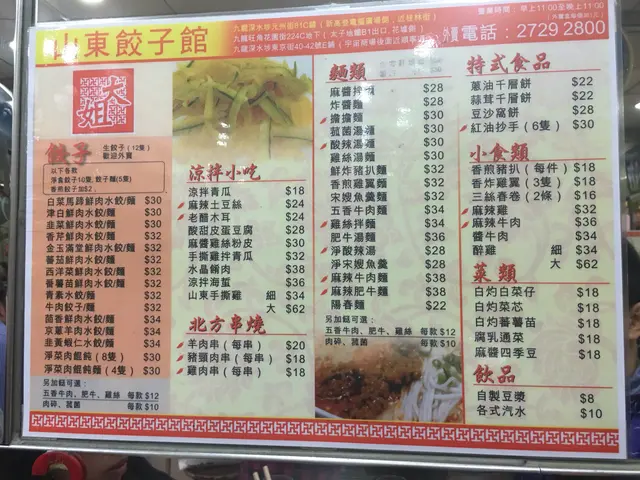 山東餃子館
九龍深水埗元州街81C鋪
九龍旺角花園街224C地下（太子地鐵B1出口，花墟側）
九龍深水埗東京街40-42號E鋪
營業時間：早上11:00至晚上11:00
外賣電話：2729 2800
大姐
餃子
生餃子（12隻）
歡迎外賣
以下各款
淨食餃子10隻,餃子麵(5隻)
香煎餃子加$2
白菜馬蹄鮮肉水餃/麵 $30
津白鮮肉水餃/麵 $30
韭菜鮮肉水餃/麵 $30
香芹鮮肉水餃/麵 $32
金玉滿堂鮮肉水餃/麵 $32
蕃茄鮮肉水餃/麵 $32
西洋菜鮮肉水餃/麵 $32
番薯苗鮮肉水餃/麵 $32
青素水餃/麵 $32
牛肉餃子/麵 $32
茴香鮮肉水餃/麵 $34
京蔥羊肉水餃/麵 $34
韭黃蝦仁水餃/麵 $34
淨菜肉餛飩（8隻） $30
淨菜肉餛飩麵（4隻） $30
另加餸可選：
五香牛肉，肥牛，雞絲 每款 $12
肉碎、菰菌 每款 $10
涼拌小吃
涼拌青瓜 $18
麻辣土豆絲 $24
老醋木耳 $24
酸甜皮蛋豆腐 $28
麻醬雞絲粉皮 $30
手撕雞拌青瓜 $32
水晶餚肉 $38
涼拌海蜇 $36
山東手撕雞 細 $34
大 $62
北方串燒
羊肉串（每串） $20
豬頸肉串（每串） $18
雞肉串（每串） $18
麵類
麻醬拌麵 $28
炸醬麵 $28
擔擔麵 $30
菰菌湯麵 $30
酸辣湯麵 $30
雞絲湯麵 $30
鮮炸豬扒麵 $32
香煎雞翼麵 $32
宋嫂魚羹麵 $32
五香牛肉麵 $34
雞絲拌麵 $34
肥牛湯麵 $36
淨酸辣湯 $28
淨宋嫂魚羹 $28
麻辣牛肉麵 $38
麻辣肥牛麵 $38
陽春麵 $22
另加餸可選：
五香牛肉、肥牛、雞絲 每款 $12
肉碎、菰菌 每款 $10
特式食品
蔥油千層餅 $22
蒜茸千層餅 $22
豆沙窩餅 $28
紅油抄手（6隻） $30
小食類
香炸豬扒（每件） $18
香炸雞翼（3隻） $18
三絲春卷（2條） $16
麻辣雞 $32
麻辣牛肉 $36
醬牛肉 $34
醉雞 細 $34
大 $62
菜類
白灼白菜仔 $18
白灼菜芯 $18
白灼蕃薯苗 $18
腐乳通菜 $18
麻醬四季豆 $18
飲品
自製豆漿 $8
各式汽水 $10